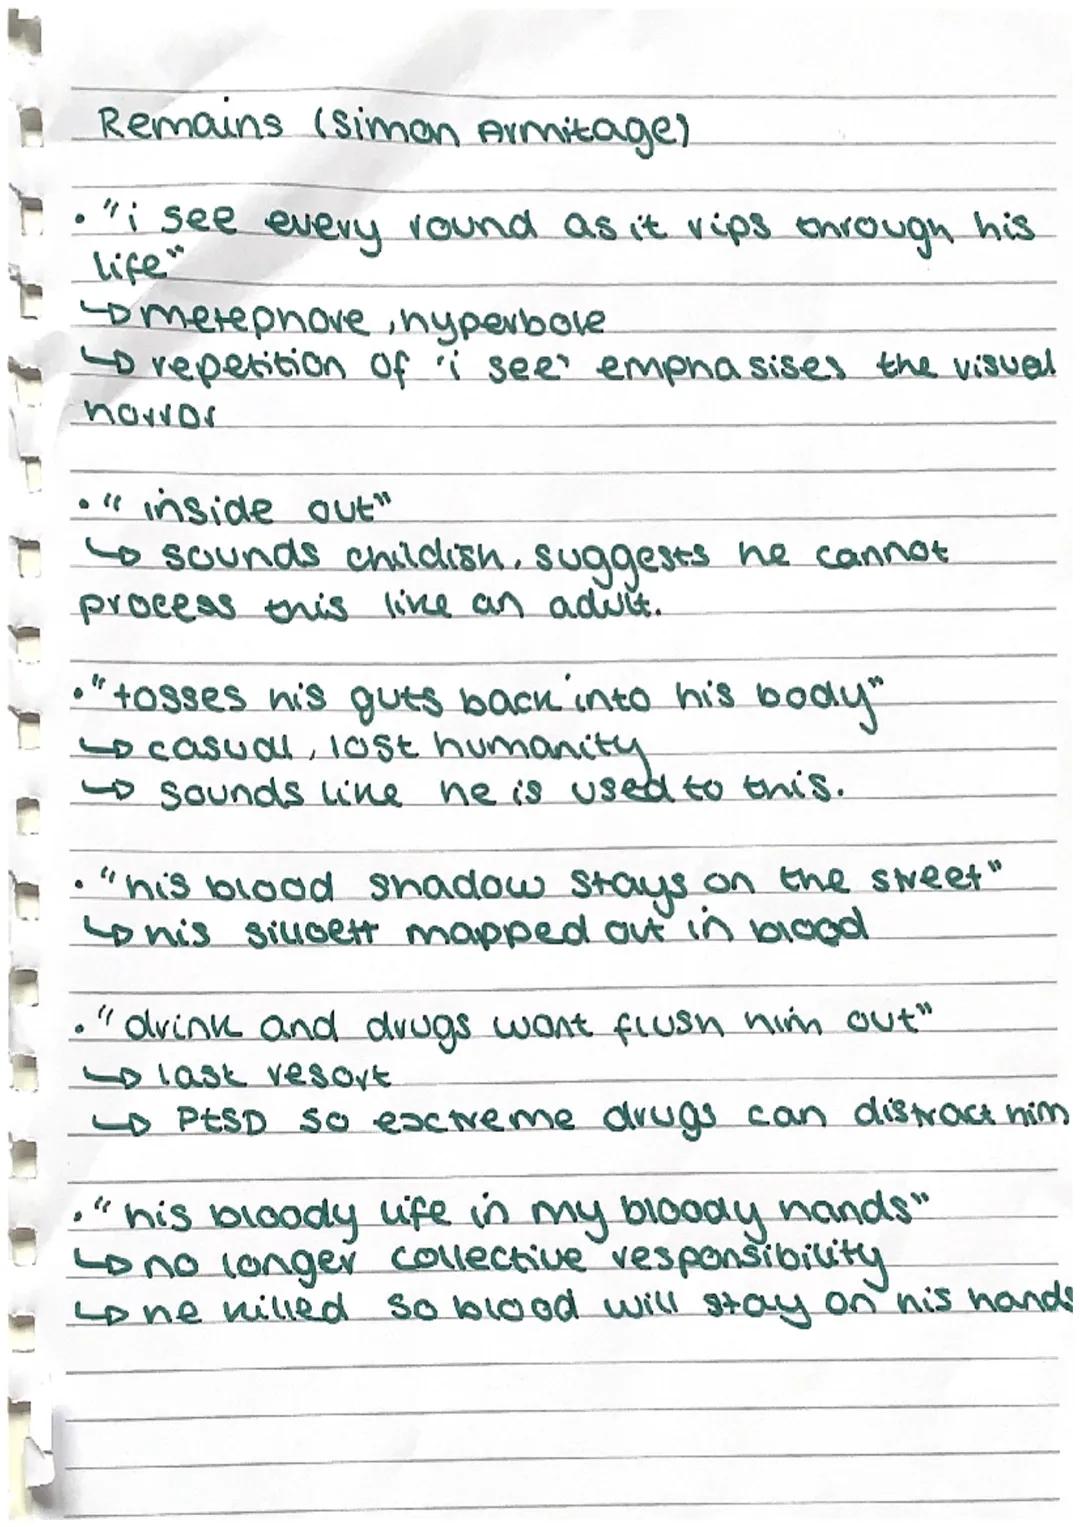 Remains (Simon Armitage)
• "i see every round as it rips through his
life"
↳ metephore, hyperbole
↳ repetition of 'i see' emphasises the visual
horror
• "inside out"
↳ sounds childish, suggests he cannot
process this like an adult.
• "tosses his guts back into his body"
↳ casual, lost humanity
↳ sounds like he is used to this.
• "his blood shadow stays on the street"
↳ his silloett mapped out in blood
• "drink and drugs wont flush him out"
↳ last resort
↳ PtSD so exctreme drugs can distract him
• "his bloody life in my bloody hands"
↳ no longer collective responsibility
↳ he killed so blood will stay on his hands